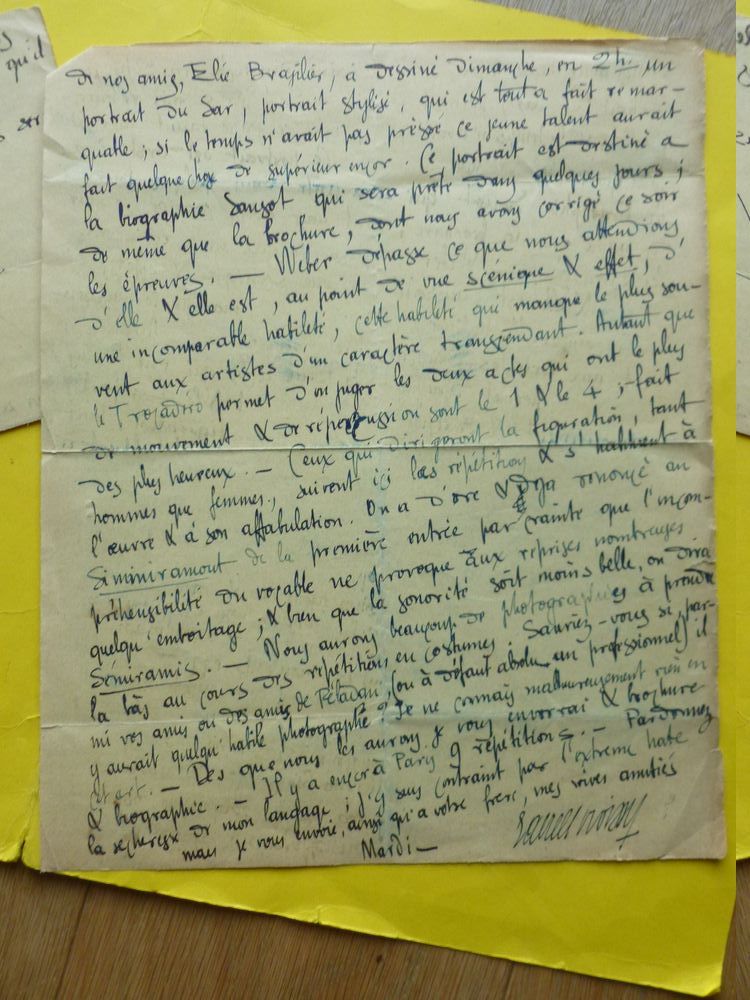 qu'il
de nos amis, Elie Brasilier, a dessiné Dimanche, en 2h un
portrait du Sar, portrait stylisé, qui est tout à fait remar-
quable ; si le temps n'avait pas pressé ce jeune talent aurait
fait quelque chose de supérieur encor. Ce portrait est destiné a
la biographie Sansot qui sera prête dans quelques jours ;
de même que la brochure, dont nous avons corrigé ce soir
les épreuves. — Weber dépasse ce que nous attendions
d'elle & elle est, au point de vue scénique & effet, d'
une incomparable habileté, cette habileté qui manque le plus sou-
vent aux artistes d'un caractère transcendant. Autant que
le Trocadéro permet d'en juger les deux actes qui ont le plus
de mouvement & de répercussion sont le 1 & le 4 ; fait
des plus heureux. — Ceux qui dirigeront la figuration, tant
hommes que femmes, suivent ici les répétitions & s'habituent à
l'œuvre & à son affabulation. On a d'ore & Deja renoncé au
Siminiramout de la première entrée par crainte que l'incom-
préhensibilité du vocable ne provoque aux reprises nombreuses
quelqu'emboitage ; & bien que la sonorité soit moins belle, on dira
Sémiramis. — Nous aurons beaucoup de photographies à prendre
la bàs au cours des répétitions en costumes. Sauriez-vous si, par-
mi vos amis ou des amis de Péladan, (ou à défaut absolu un professionnel) il
y aurait quelqu'habile photographe ? Je ne connais malheureusement rien en
cet art. — Dès que nous les aurons je vous enverrai & brochure
& biographie. — Il y a encor à Paris 9 répétitions. — Pardonnez
la secheresse de mon langage ; j'y suis contraint par l'extrême hate
mais je vous envoie, ainsi qu'a votre frere, mes vives amitiés
Mardi —